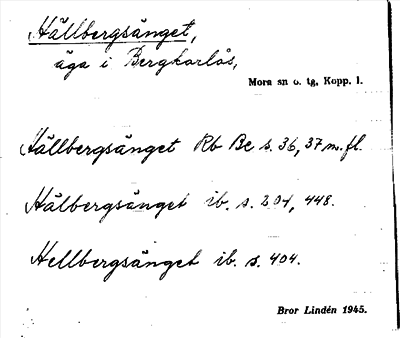 Hällbergsänget,
äga i Bergkarlås,
Mora sn o. tg, Kopp. l.
Hällbergsänget Rb Bc s. 36, 37 m. fl.
Hälbergsänget ib. s. 204, 448.
Hellbergsänget ib. s. 404.
Bror Lindén 1945.